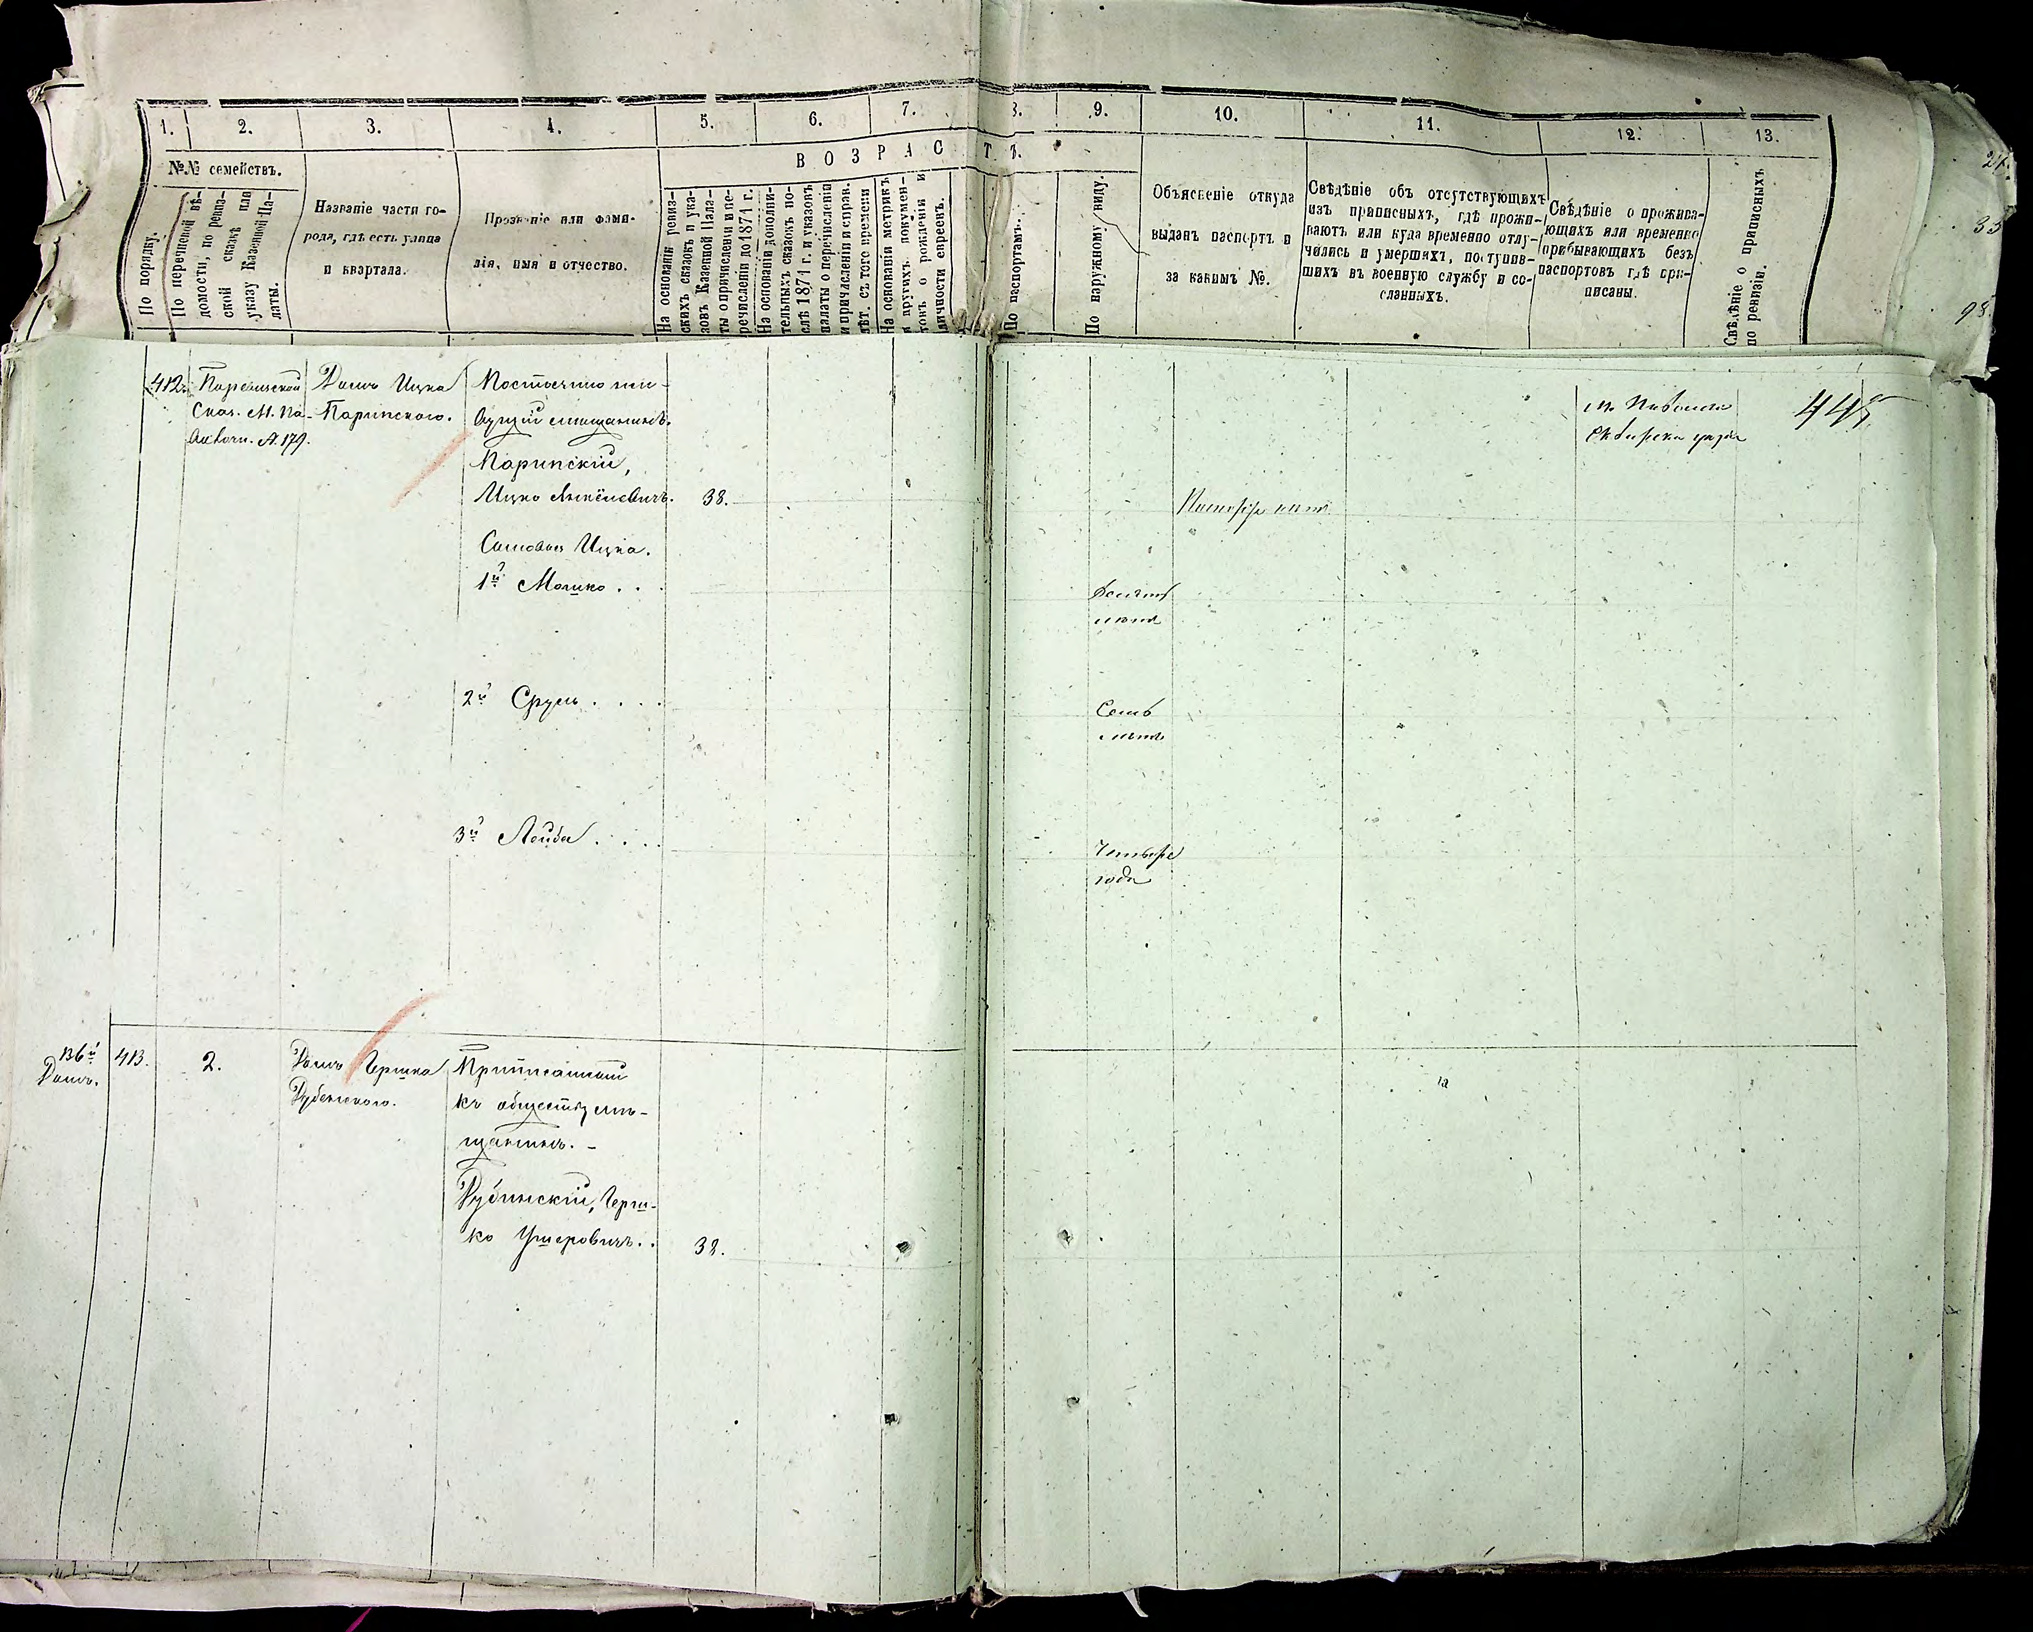 1. 2. 3. 4. 5. 6. 7. 8. 9. 10. 11. 12. 13.
№№ семействъ.
По порядку.
По перечневой вѣ-
домости, по ревиз-
ской сказкѣ или
указу Казенной Па-
латы.
Названіе части го-
рода, гдѣ есть улица
и квартала.
Прозваніе или фами-
лія, имя и отчество.
ВОЗРАСТЪ.
На основаніи ревиз-
скихъ сказокъ и ука-
зовъ Казенной Пала-
ты о причисленіи и пе-
речисленіи до 1874 г.
На основаніи дополни-
тельныхъ сказокъ по-
слѣ 1874 г. и указовъ
палаты о перечисленіи
и причисленіи и справ.
лѣт. съ того времени
На основаніи метрикъ
и другихъ докумен-
товъ о рожденіи и
личности евреевъ.
По паспортамъ.
По наружному виду.
Объясненіе откуда
выданъ паспортъ и
за какимъ №.
Свѣдѣніе объ отсутствующихъ
изъ приписныхъ, гдѣ прожи-
ваютъ или куда временно отлу-
чились и умершихъ, поступив-
шихъ въ военную службу и со-
сланныхъ.
Свѣдѣніе о прожива-
ющихъ или временно
прибывающихъ безъ
паспортовъ гдѣ при-
писаны.
Свѣдѣніе о приписныхъ
по ревизіи.
412.
Скаж. М. Па-
А. 179.
Домъ Ицка
Паринскаго.
мѣщанинъ.
Паринскій,
Ицко Янкелевичъ.
38.
Сыновья Ицка.
1й Мошко . . .
Десять
лѣтъ
2й Сруль . . . .
Семь
лѣтъ
3й Лейба . . . .
Четыре
года
м. Паволочи
445
136й
Домъ.
413.
2.
Домъ Гершка
Дубинскаго.
Приписанный
къ обществу мѣ-
щанинъ. –
Дубинскій, Герш-
ко Ушеровичъ. .
38.